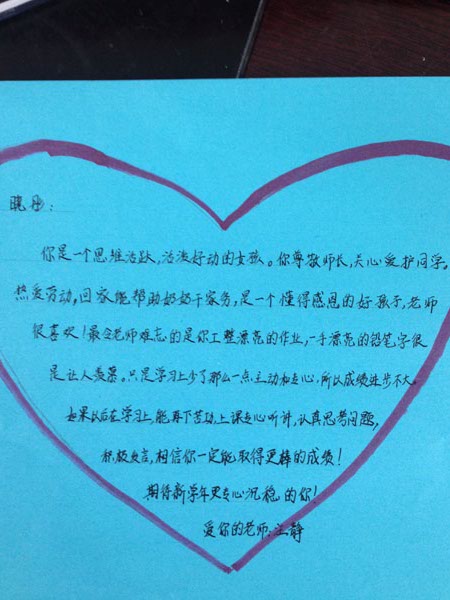 晓丹：
你是一个思维活跃，活泼好动的女孩。你尊敬师长，关心爱护同学，
热爱劳动，回家能帮助奶奶干家务，是一个懂得感恩的好孩子，老师
很喜欢！最令老师难忘的是你工整漂亮的作业，一手漂亮的铅笔字很
是让人羡慕。只是学习上少了那么一点主动和专心，所以成绩进步不大。
如果以后在学习上，能再下苦功，上课专心听讲，认真思考问题，
积极发言，相信你一定能取得更棒的成绩！
期待新学年更专心沉稳的你！
爱你的老师：兰静